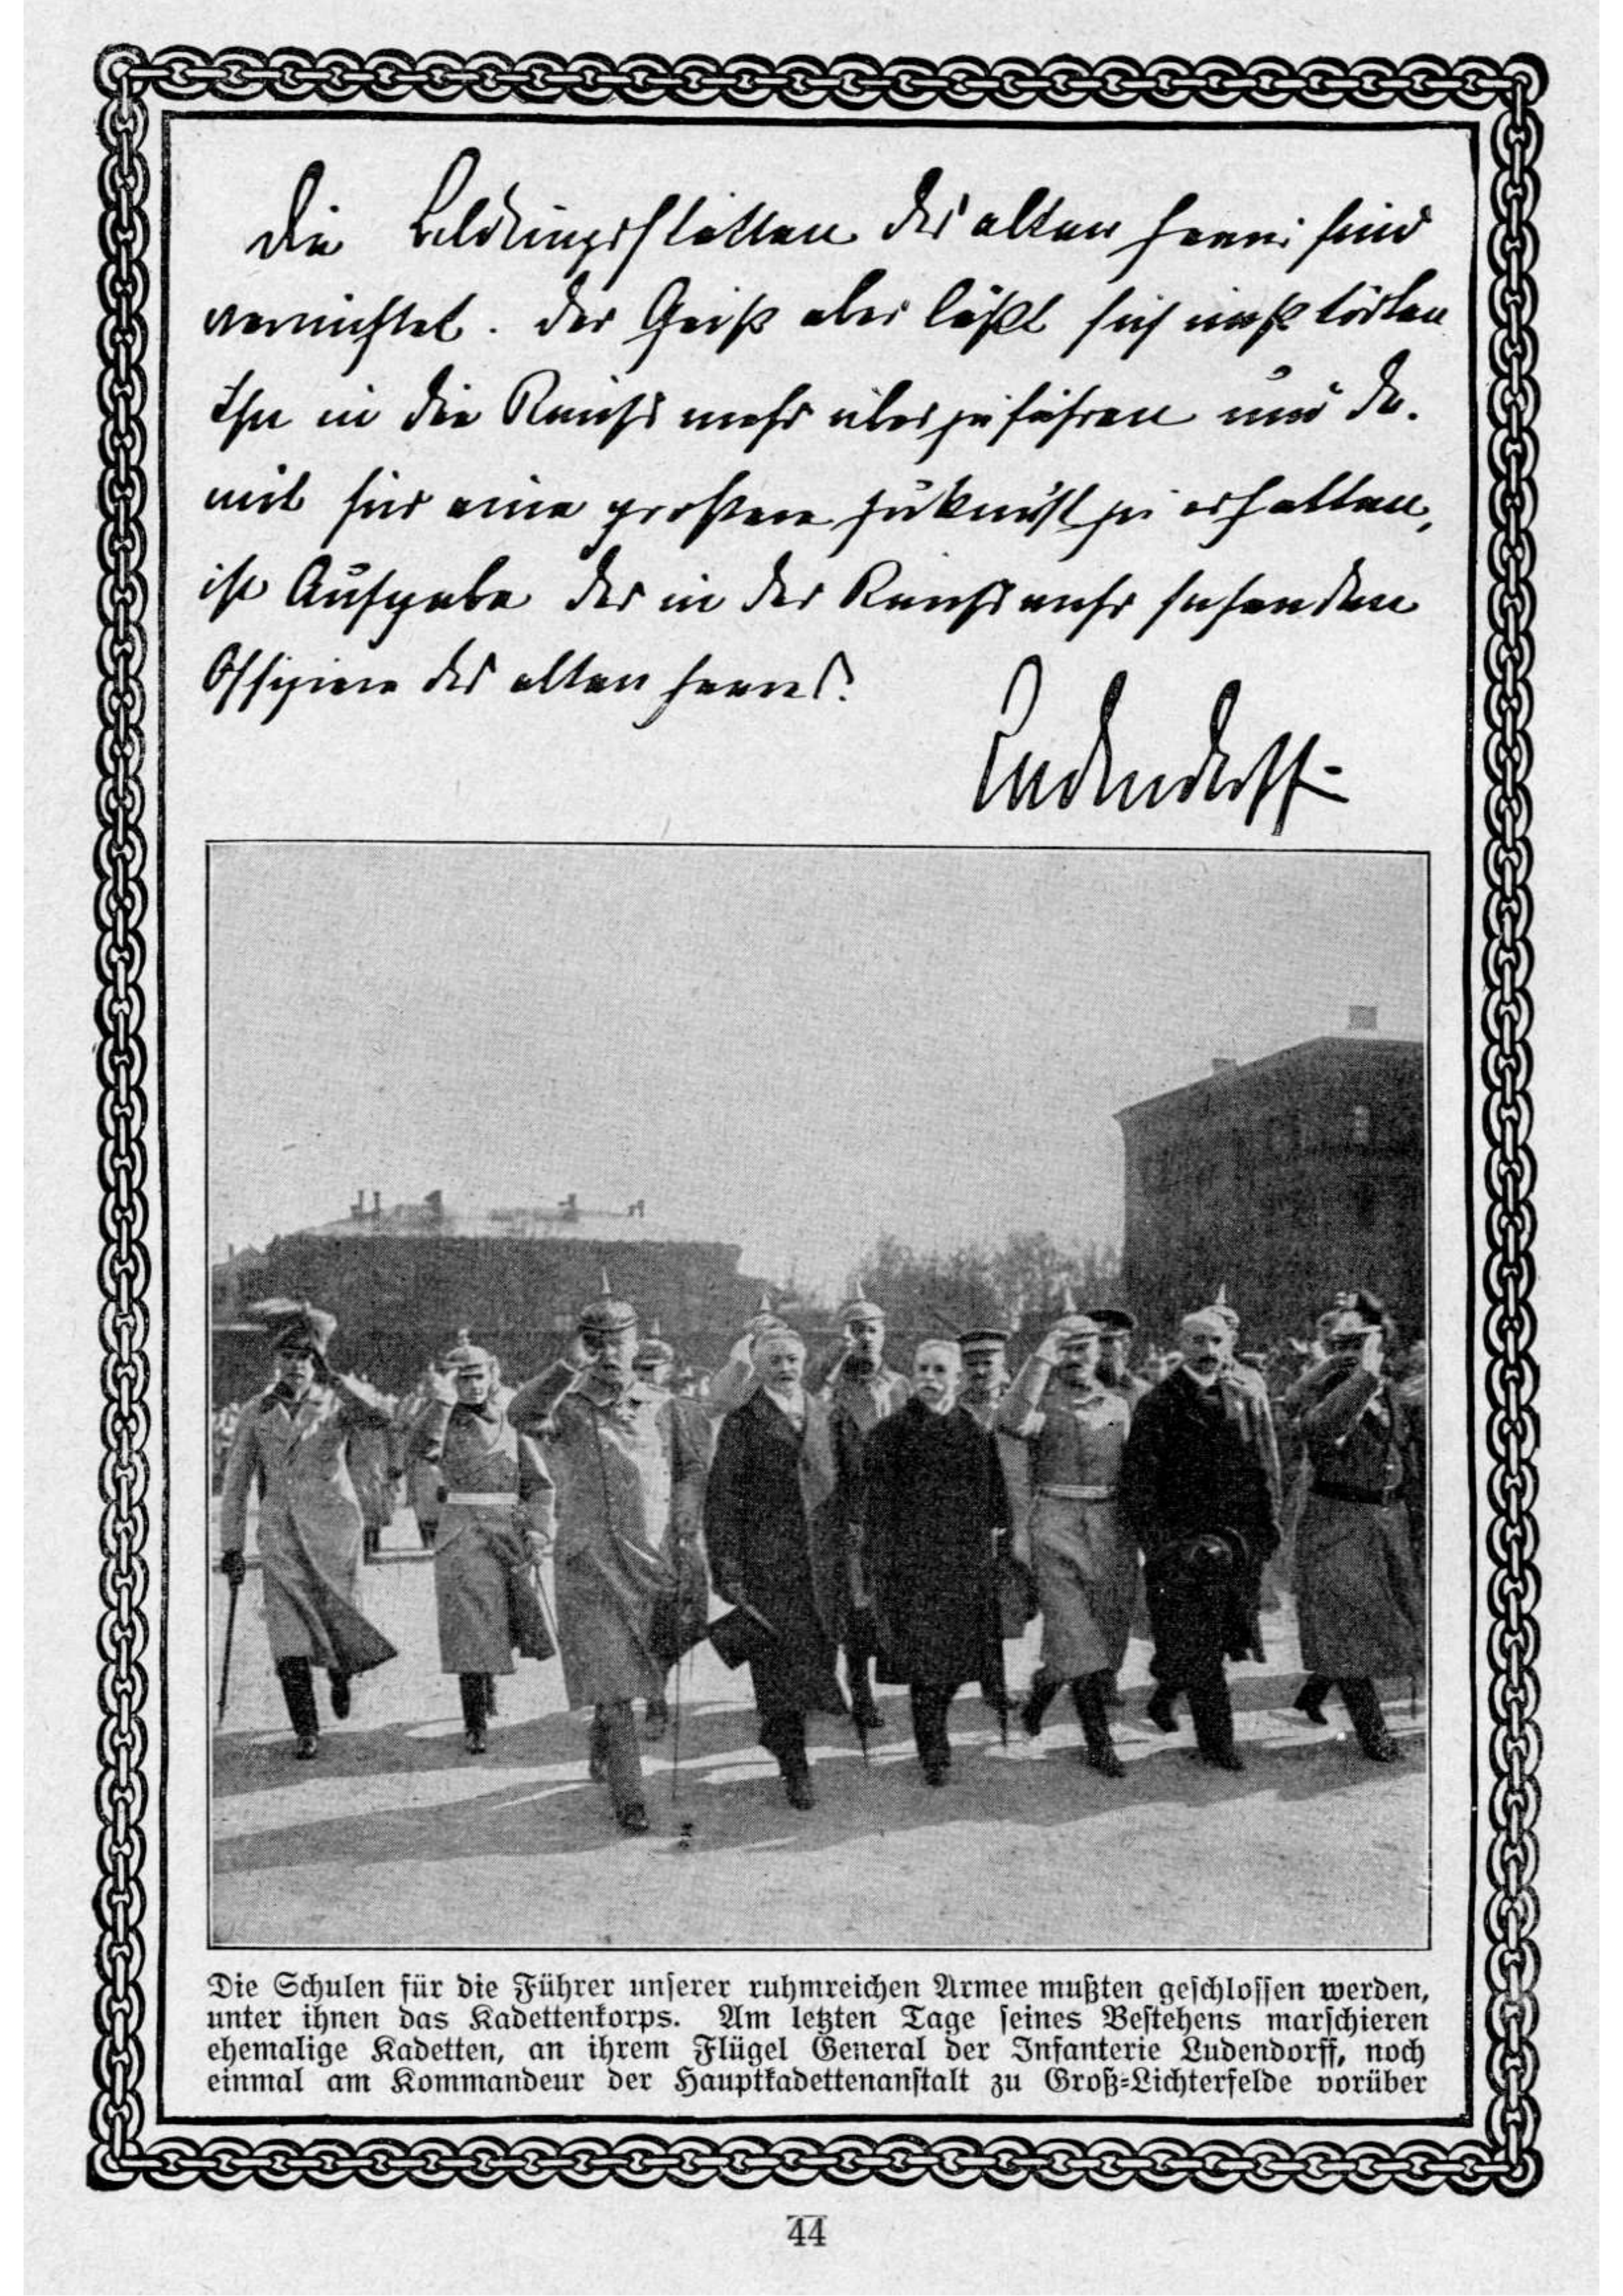 Die Bildungsstätten des alten Heeres sind
vernichtet. Der Geist aber läßt sich nicht töten
Ihn in die Reichswehr überzuführen und da-
mit für eine größere Zukunft zu erhalten,
ist Aufgabe der in der Reichswehr stehenden
Offiziere des alten Heeres.
Ludendorff
Die Schulen für die Führer unserer ruhmreichen Armee mußten geschlossen werden,
unter ihnen das Kadettenkorps. Am letzten Tage seines Bestehens marschieren
ehemalige Kadetten, an ihrem Flügel General der Infanterie Ludendorff, noch
einmal am Kommandeur der Hauptkadettenanstalt zu Groß-Lichterfelde vorüber
44